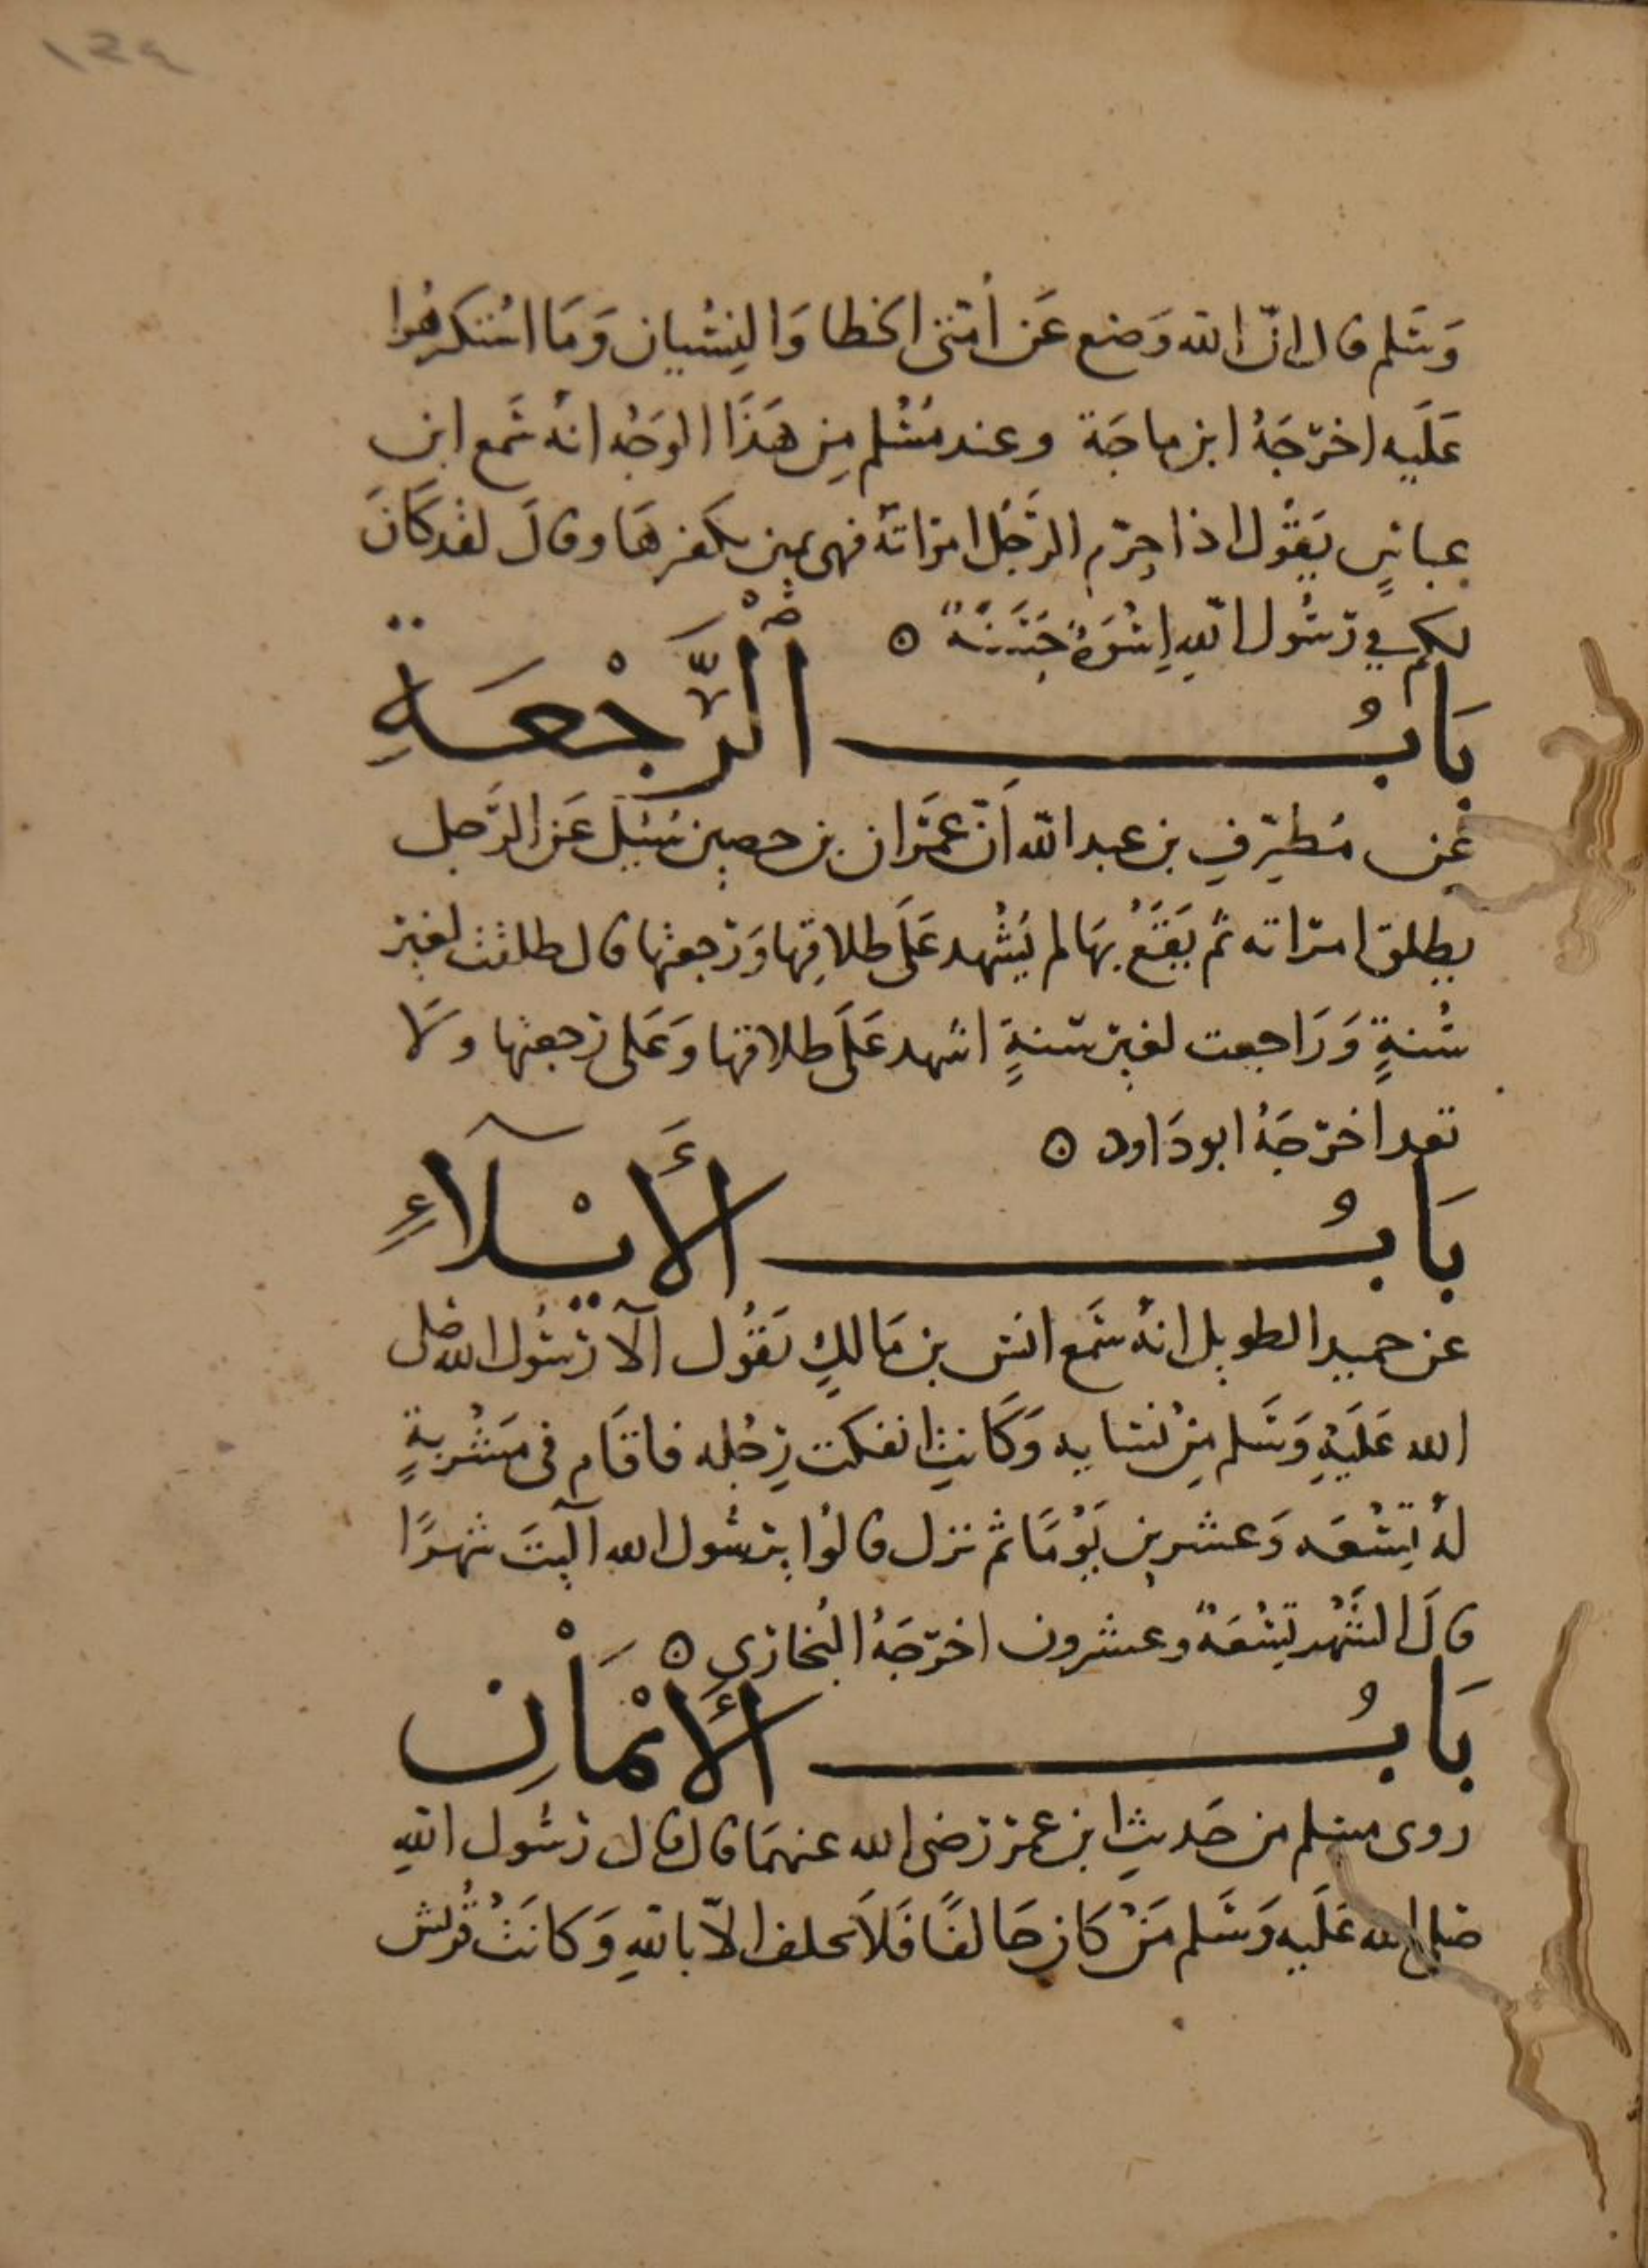 ١٢٤
وَسَلم قال انّ الله وَضع عَن أمتى الخطا وَالنِسْيان وَمَا اسْتكرهُوا
عَلَيه اخرّجَهُ ابن ماجَة وعند مُسْلم مِن هَذَا الوَجْه انهُ سَمع ابن
عباسٍ يَقُول اذا حرّم الرّجُل امرَاتهُ فهى يمين يكفرهَا وقالَ لقد كَانَ
لكم في رَسُول اللهِ اِسْوَةٌ حَسَنَةٌ ه
بَابُ الرَّجْعَةِ
عن مُطرّفِ بن عبد الله اَنّ عمَرَان بن حصين سُئِلَ عَن الرَّجل
يطلق امرَاته ثم يَقَعُ بهَا لم يُشْهد عَلَى طلاقِها وَرَجعتها قال طلقت لغير
سُنةٍ وَرَاجعت لغير سنةٍ اشهد عَلَى طلاقها وَعَلى رَجعتها ولَا
تعد اخرّجَهُ ابو دَاود ه
بَابُ الأَيْلآءِ
عن حميد الطويل انهُ سَمع انس بن مَالكٍ يَقُول آلا رَسُول الله صَلى
الله عَلَيْهِ وَسَلم مِنْ نسَايه وَكَانتِ انفكت رِجْله فاقَام فى مَشْربةٍ
لهُ تِسْعَه وَعشرين يَوْمًا ثم نزل قالوُا يرسُول الله آليتَ شهرًا
قالَ الشَهْر تِسْعَةٌ وعشرون اخرّجَهُ البُخارَى ه
بَابُ الأَيْمَانِ
روى مسلم من حَديثِ ابن عمرَ رَضى الله عنهمَا قال قال رَسُول اللهِ
صَلى الله عَلَيه وَسَلم مَنْ كَان حَالفًا فَلاَ يحلف الاّ باللهِ وَكانَتْ قُرَيش